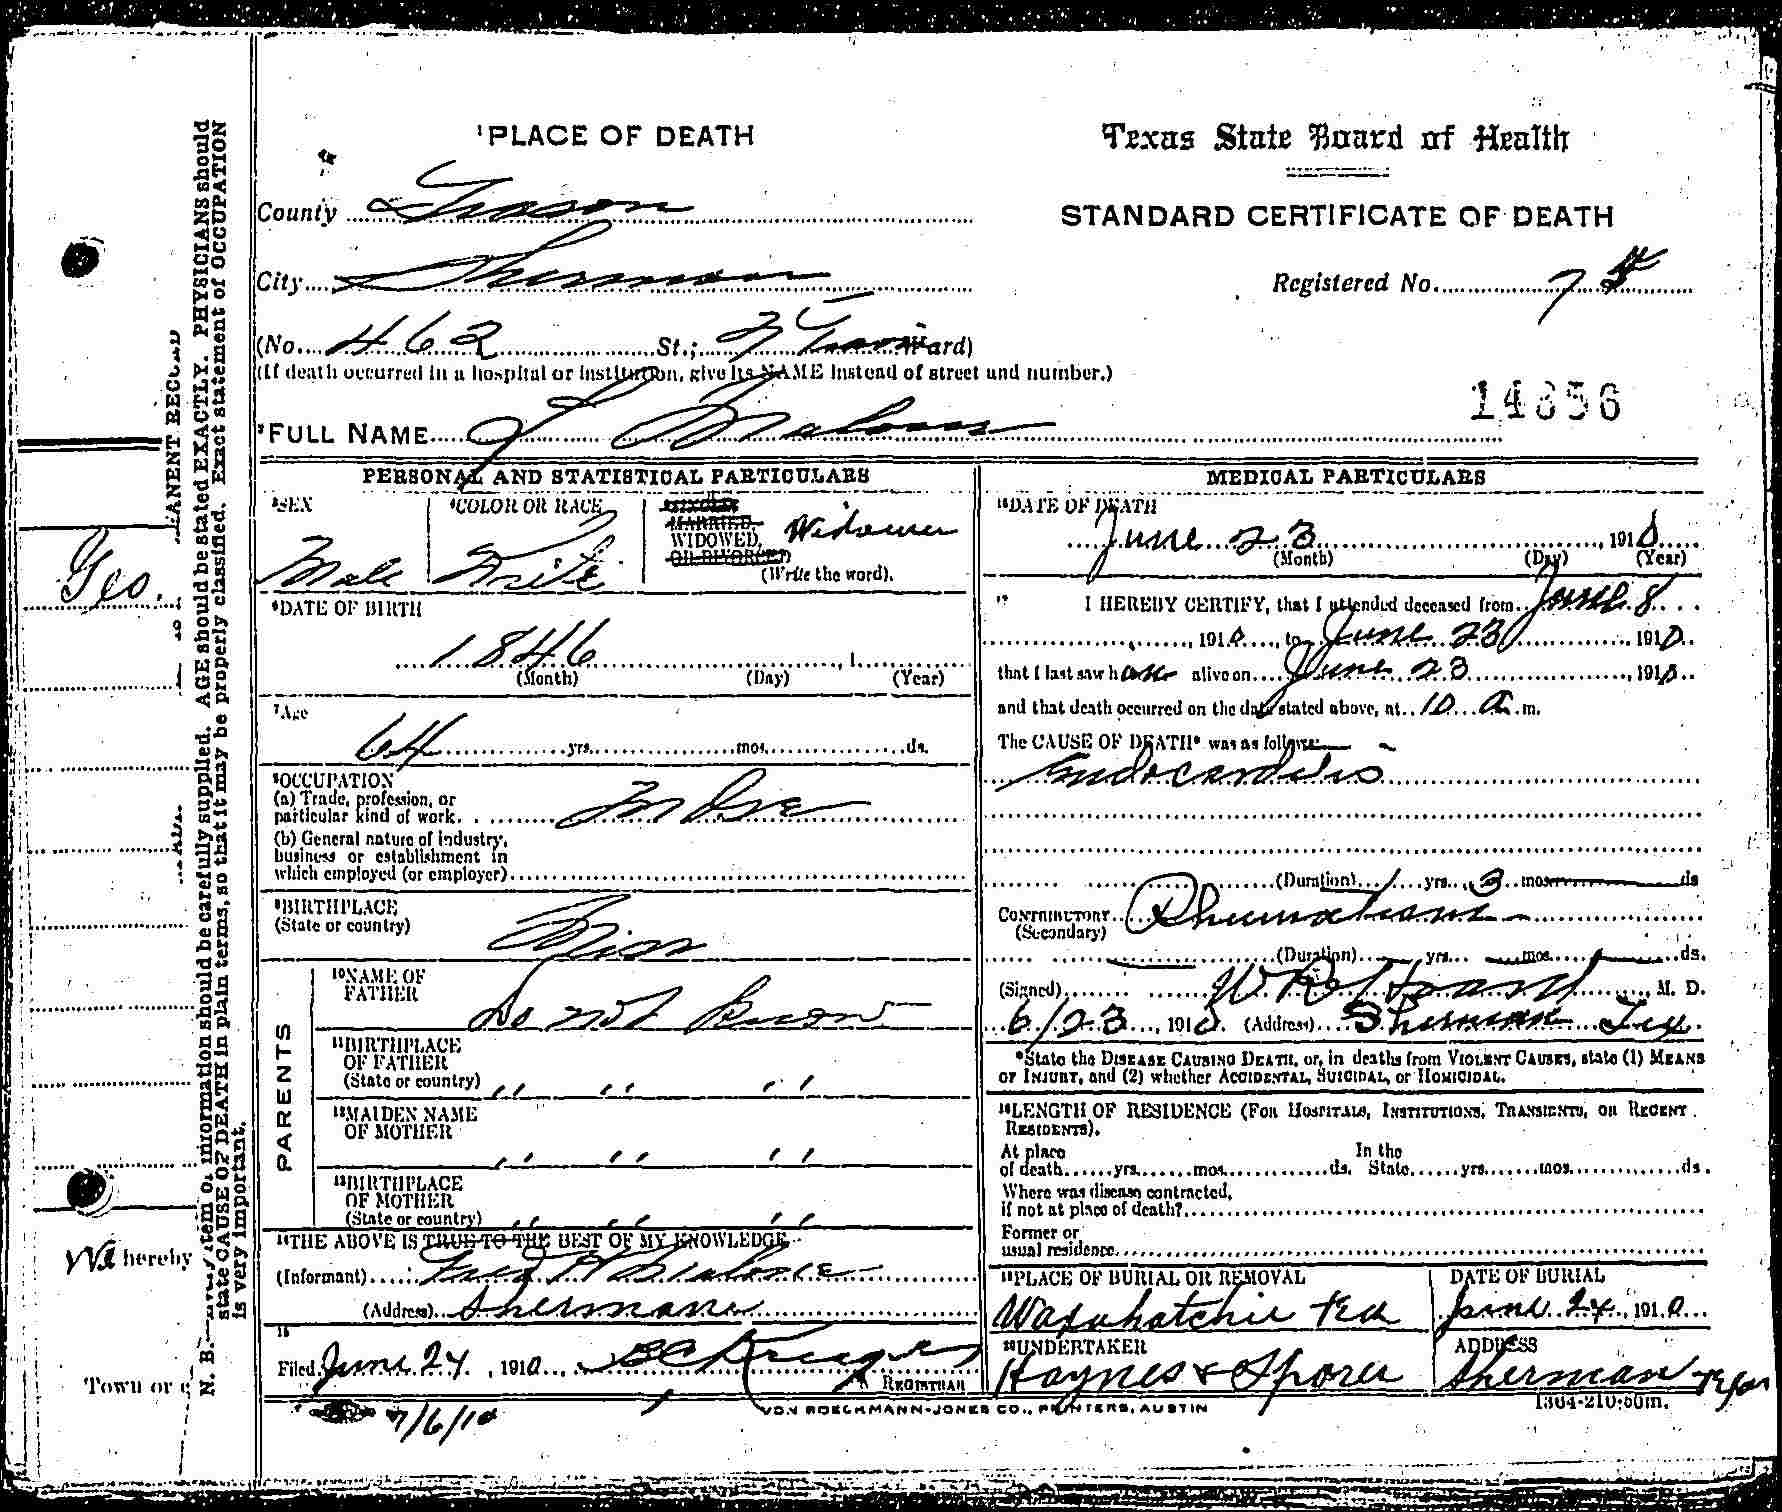 ¹PLACE OF DEATH
Texas State Board of Health
County Grayson
STANDARD CERTIFICATE OF DEATH
City Sherman
Registered No. 7
(No. 462 St.; N Travis Ward)
(If death occurred in a hospital or institution, give its NAME instead of street and number.)
14856
²FULL NAME J T Malone
PERSONAL AND STATISTICAL PARTICULARS
³SEX
Male
⁴COLOR OR RACE
SINGLE
MARRIED,
WIDOWED,
OR DIVORCED
Widower
(Write the word).
⁶DATE OF BIRTH
1846 , 1
(Month) (Day) (Year)
⁷Age
64 yrs. mos. ds.
⁸OCCUPATION
(a) Trade, profession, or
particular kind of work.
(b) General nature of industry,
business or establishment in
which employed (or employer)
⁹BIRTHPLACE
(State or country)
Miss
PARENTS
¹⁰NAME OF
FATHER
Do not Know
¹¹BIRTHPLACE
OF FATHER
(State or country) ,, ,, ,,
¹²MAIDEN NAME
OF MOTHER
,, ,, ,,
¹³BIRTHPLACE
OF MOTHER
(State or country) ,, ,, ,,
¹⁴THE ABOVE IS TRUE TO THE BEST OF MY KNOWLEDGE
(Informant) Fred Malone
(Address) Sherman
15
Filed June 24, 1910
REGISTRAR
7/6/10
MEDICAL PARTICULARS
¹⁶DATE OF DEATH
June 23, 1910
(Month) (Day) (Year)
¹⁷ I HEREBY CERTIFY, that I attended deceased from June 8
, 1910, to June 23, 1910
that I last saw h alive on June 23, 1910
and that death occurred on the date stated above, at 10 a. m.
The CAUSE OF DEATH* was as follows:
Endocarditis
(Duration) 1 yrs. 3 mos. ds
CONTRIBUTORY Rheumatism
(Secondary)
(Duration) yrs. mos. ds.
(Signed) M. D.
6/23, 1910 (Address) Sherman Tex
*State the DISEASE CAUSING DEATH, or, in deaths from VIOLENT CAUSES, state (1) MEANS
OF INJURY, and (2) whether ACCIDENTAL, SUICIDAL, or HOMICIDAL.
¹⁸LENGTH OF RESIDENCE (FOR HOSPITALS, INSTITUTIONS, TRANSIENTS, OR RECENT
RESIDENTS).
At place In the
of death yrs. mos. ds. State yrs. mos. ds.
Where was disease contracted,
if not at place of death?
Former or
usual residence
¹⁹PLACE OF BURIAL OR REMOVAL
Waxahatchie Tex
DATE OF BURIAL
June 24, 1910
²⁰UNDERTAKER
Haynes &
ADDRESS
Sherman Texas
VON BOECKMANN-JONES CO., PRINTERS, AUSTIN
1364-210-50m.
Geo.
We hereby
Town or
ANENT RECORD
N. B.— item of information should be carefully supplied. AGE should be stated EXACTLY. PHYSICIANS should
state CAUSE OF DEATH in plain terms, so that it may be properly classified. Exact statement of OCCUPATION
is very important.